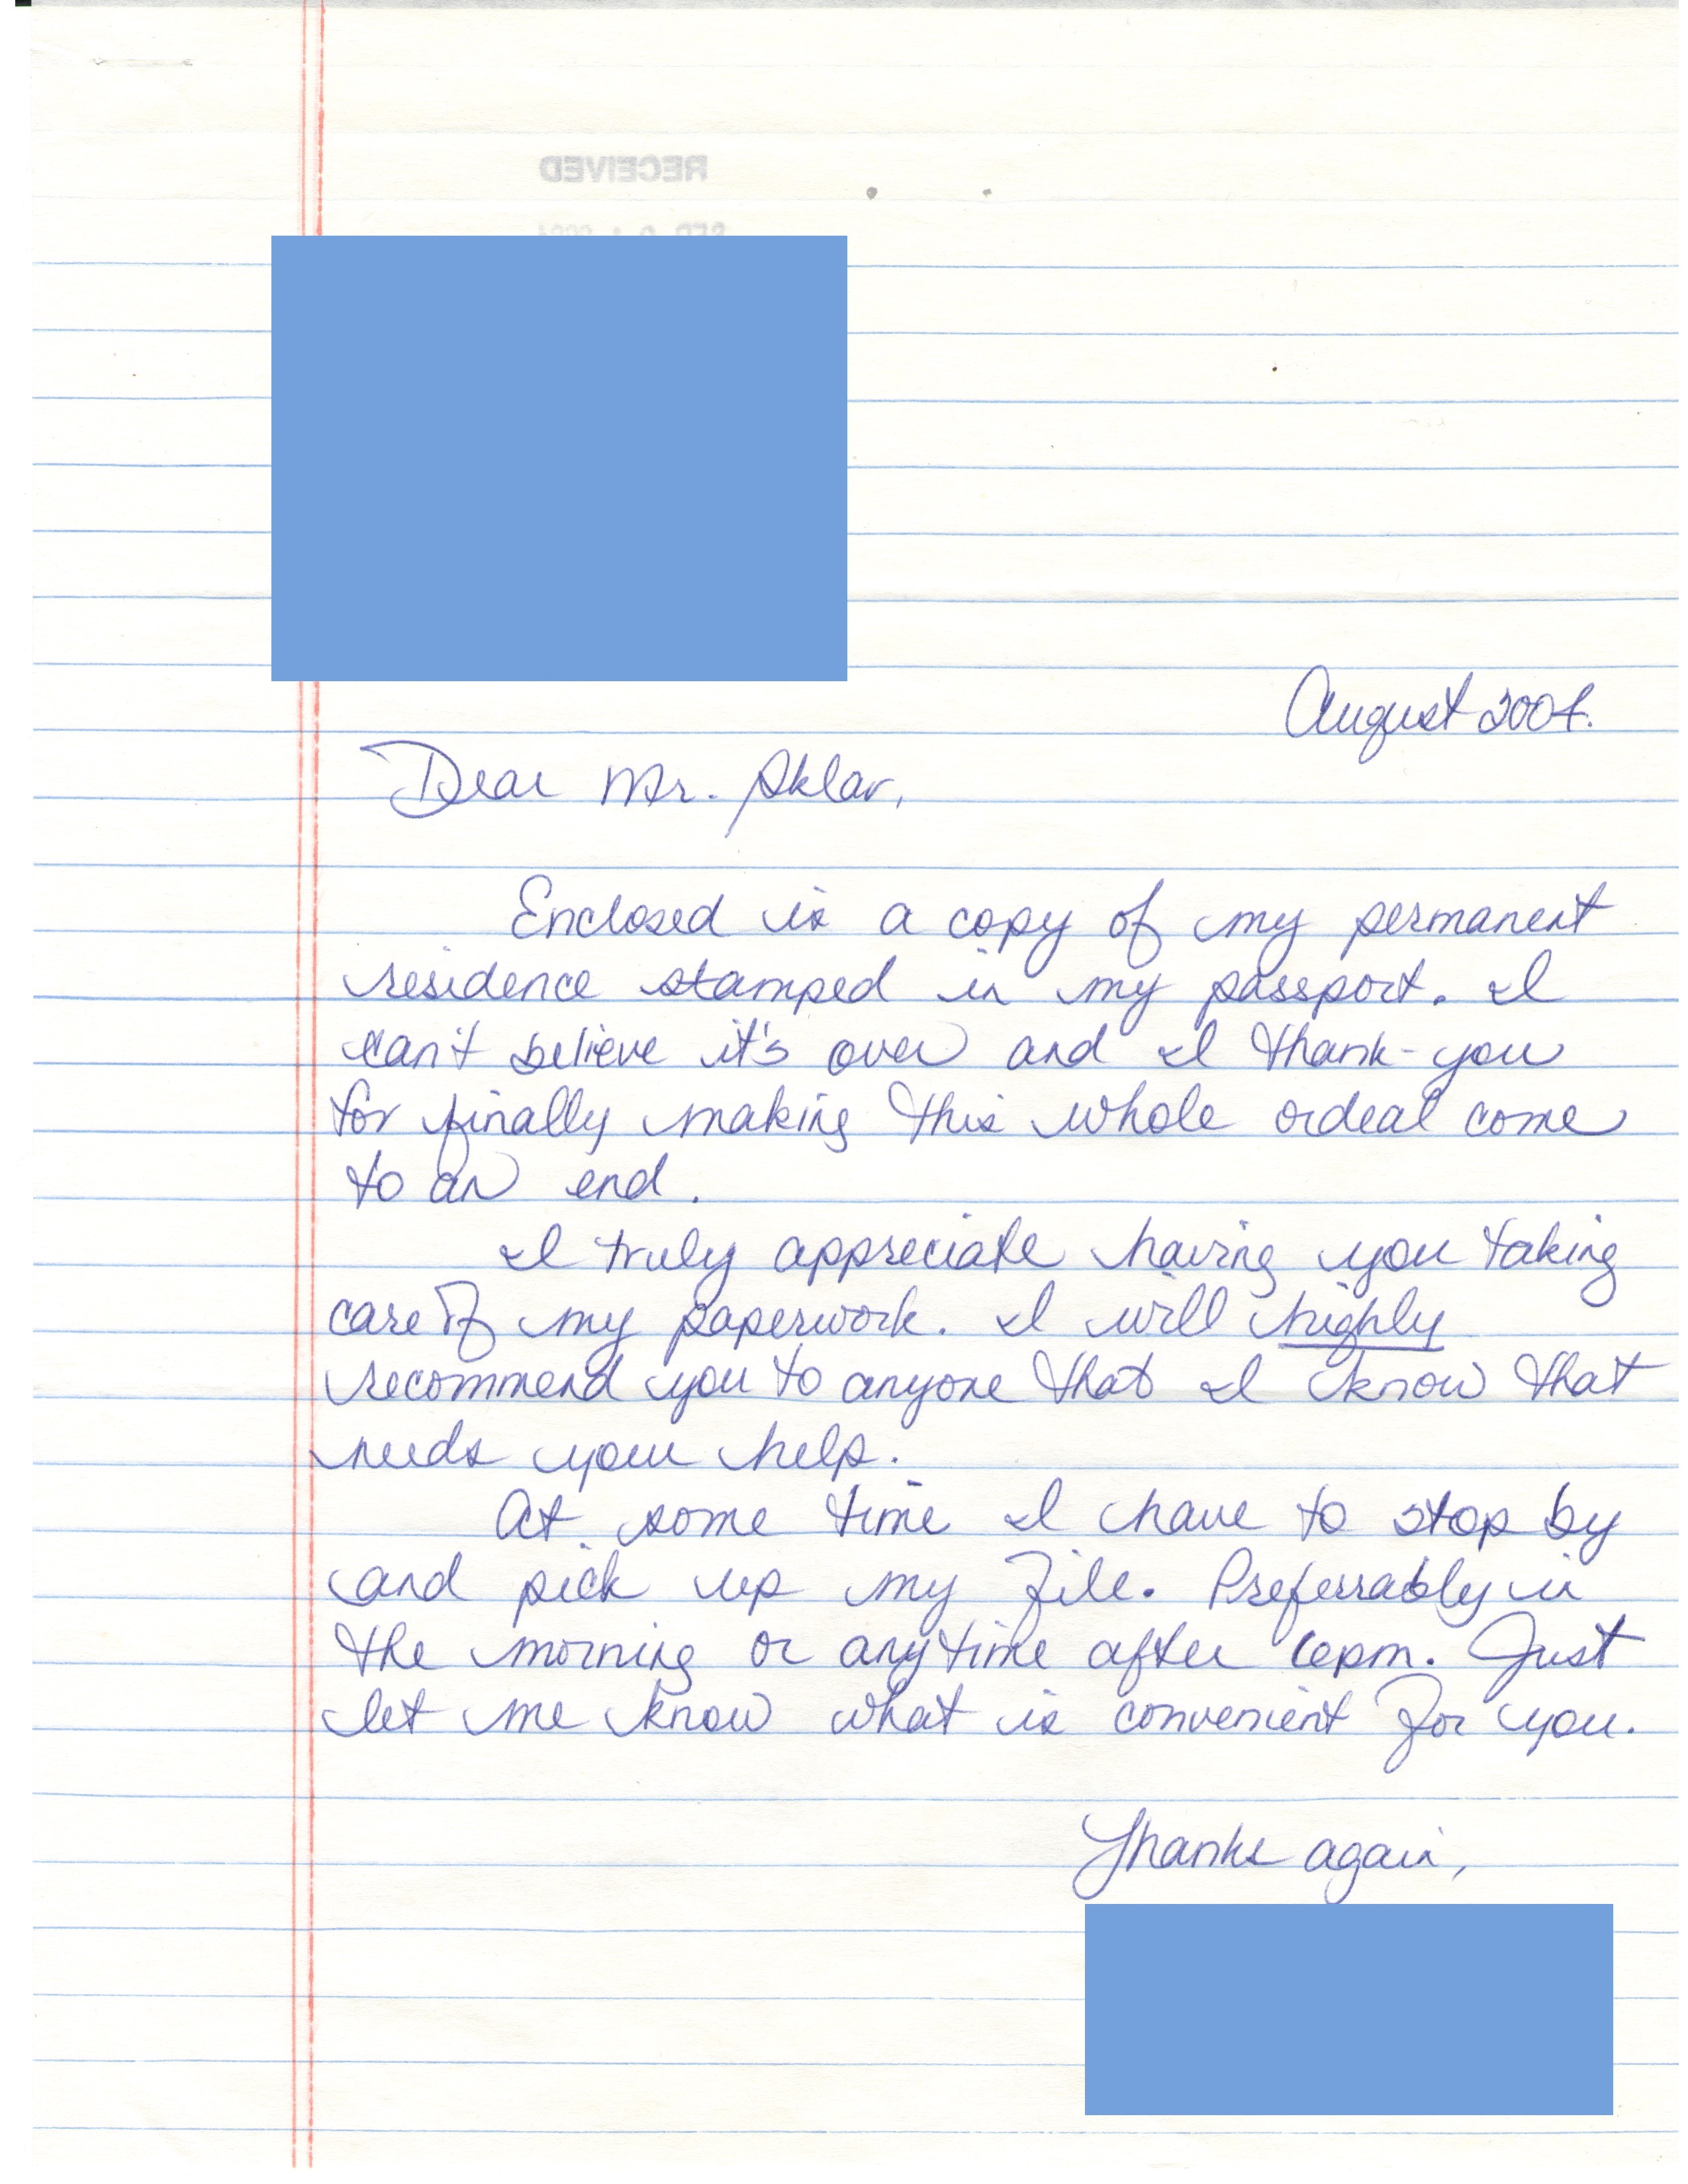 RECEIVED
August 2004.
Dear Mr. Sklar,
Enclosed is a copy of my permanent
residence stamped in my passport. I
can't believe it's over and I thank-you
for finally making this whole ordeal come
to an end.
I truly appreciate having you taking
care of my paperwork. I will highly
recommend you to anyone that I know that
needs your help.
At some time I have to stop by
and pick up my file. Preferrably in
the morning or anytime after 6pm. Just
let me know what is convenient for you.
Thanks again,